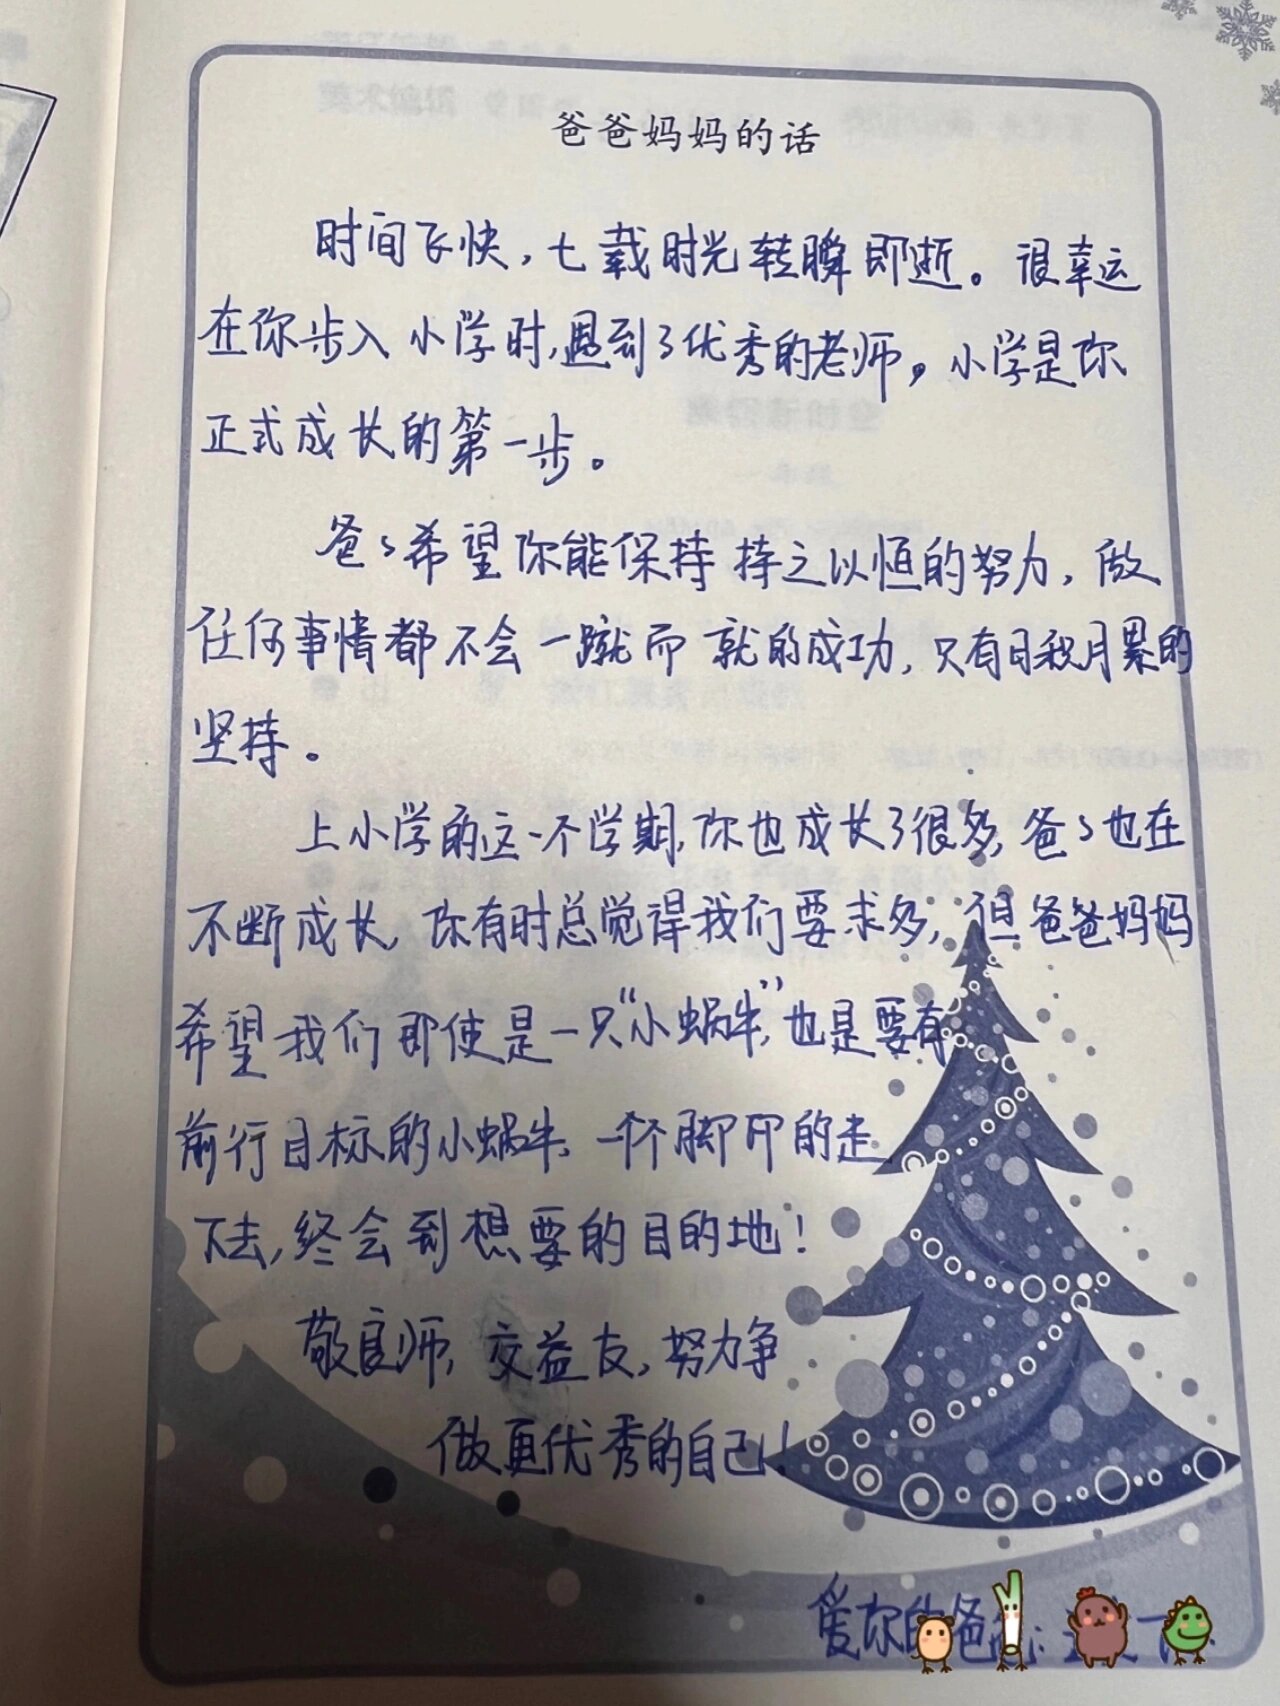 爸爸妈妈的话
时间飞快，七载时光转瞬即逝。很幸运
在你步入小学时，遇到了优秀的老师。小学是你
正式成长的第一步。
爸爸希望你能保持持之以恒的努力，做
任何事情都不会一蹴而就的成功，只有日积月累的
坚持。
上小学的这一个学期，你也成长了很多，爸爸也在
不断成长，你有时总觉得我们要求多，但爸爸妈妈
希望我们即使是一只“小蜗牛”，也是要有
前行目标的小蜗牛，一个个脚印的走
下去，终会到想要的目的地！
敬良师，交益友，努力争
做更优秀的自己！
爱你的爸